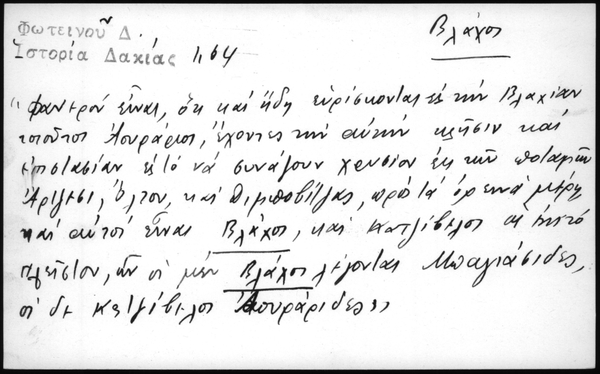 Φωτεινοῦ Δ.
Ἱστορία Δακίας 1,64
Βλάχοι
"φανερόν εἶναι, ὅτι καί ἤδη εὑρίσκονται εἰς τήν Βλαχίαν
τοιοῦτοι Αουράριοι, ἔχοντες τήν αὐτήν κλῆσιν καί
ἐπιστασίαν εἰς τό νά συνάζουν χρυσίον ἐκ τῶν ποταμῶν
Ἀρίζεσι, Ὄλτου, καί Διμποβίτζας, πρός τά ὀρεινά μέρη
καί αὐτοί εἶναι Βλάχοι, καί κατζίβελοι ὡς ἐπί τό
πλεῖστον, ὧν οἱ μέν Βλάχοι λέγονται Μπαγιάσιδες,
οἱ δέ κατζίβελοι Ἀουράριδες"